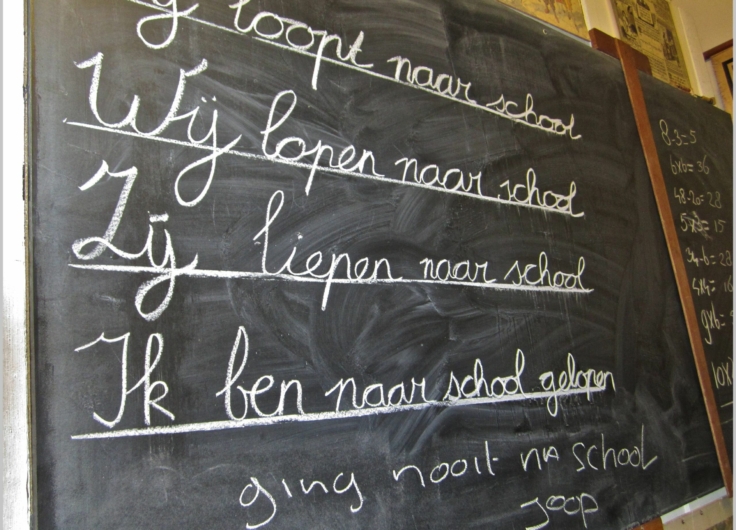 loopt naar school
Wij lopen naar school
Zij liepen naar school
Ik ben naar school gelopen
ging nooit na school
Joop
8-3=5
6x6=36
48-20=28
5x3=15
34-6=28
4x4=
9x6=
10x